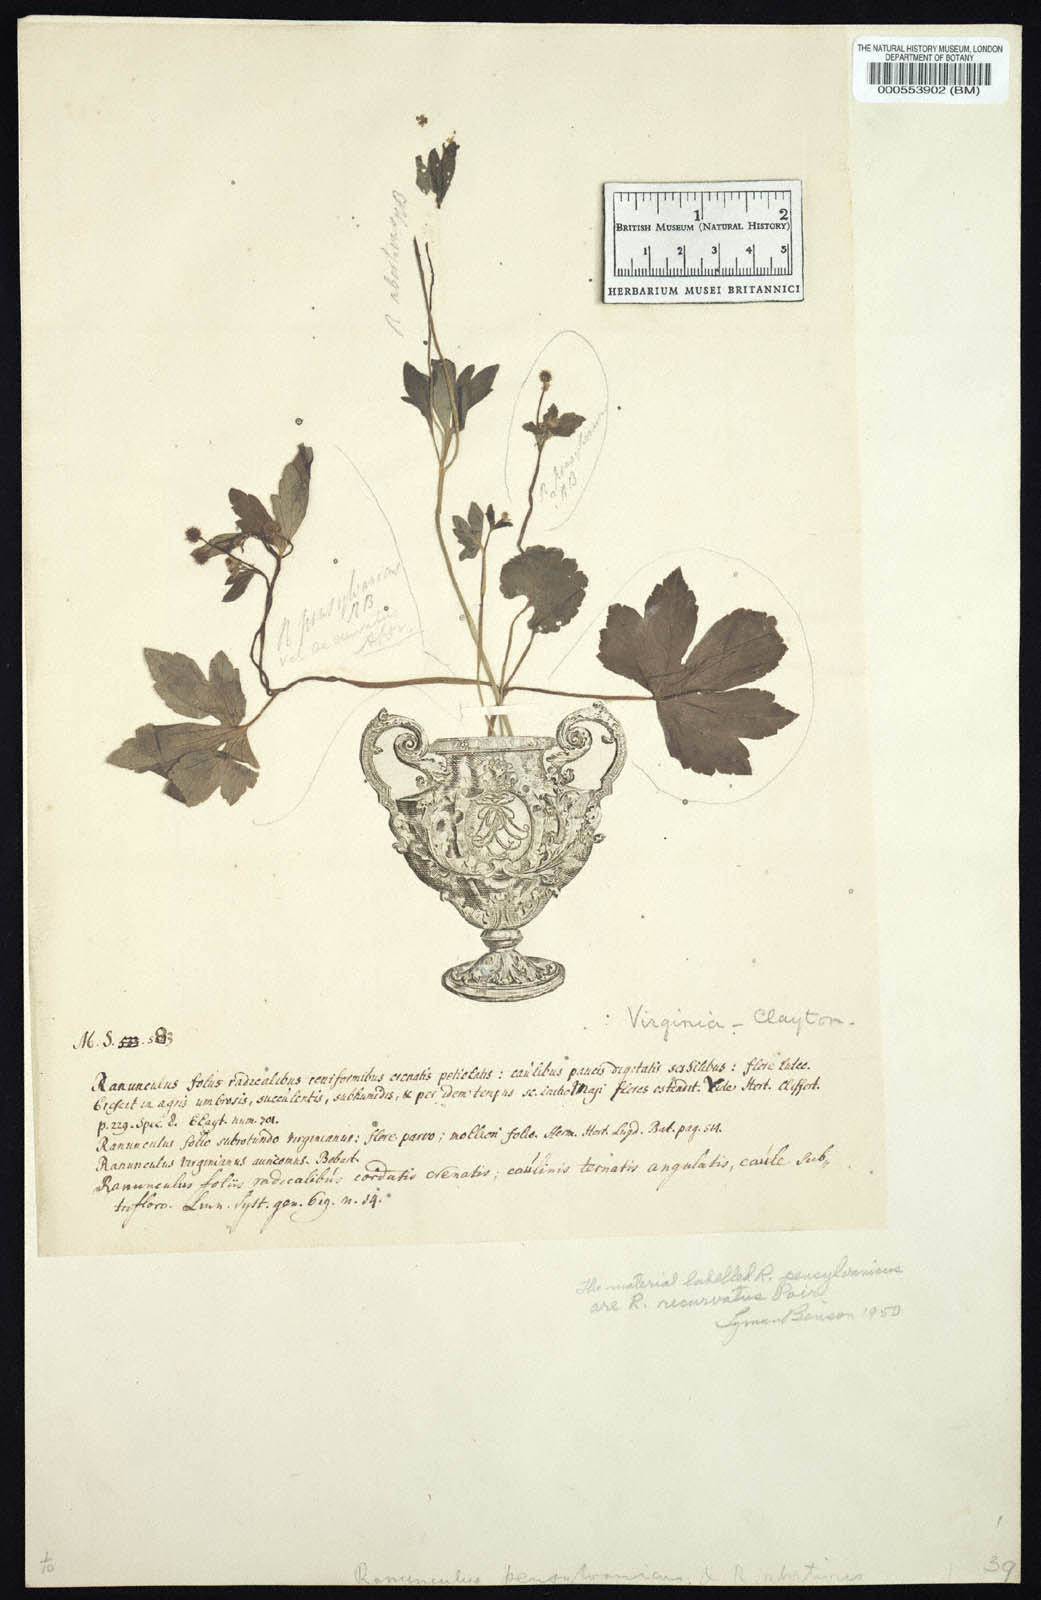 THE NATURAL HISTORY MUSEUM, LONDON
DEPARTMENT OF BOTANY
000553902 (BM)
1 2
BRITISH MUSEUM (NATURAL HISTORY)
1 2 3 4 5
HERBARIUM MUSEI BRITANNICI
R abortivus AB
R pensylvanicus
? AB
R pensylvanicus
AB
Virginia - Clayton.
M. S. 583
Ranunculus foliis radicalibus reniformibus crenatis petiolatis : caulibus paucis digitatis sessilibus : flore luteo.
Crescit in agris umbrosis, succulentis, subhumidis, & per idem tempus sc. initio Maji flores ostendit. Vide Hort. Cliffort.
p. 229. Spec. 2. Clayt. num. 701.
Ranunculus folio subrotundo virginianus : flore parvo ; molliori folio. Herm. Hort. Lugd. Bat. pag. 514.
Ranunculus virginianus auricomus. Bobart.
Ranunculus foliis radicalibus cordatis crenatis ; caulinis ternatis angulatis, caule sub,
trifloro. Linn. Syst. gen. 619. n. 14.
The material labelled R. pensylvanicus
are R. recurvatus Poir
Lyman Benson 1950
1/10
Ranunculus pensylvanicus & R. abortivus
39